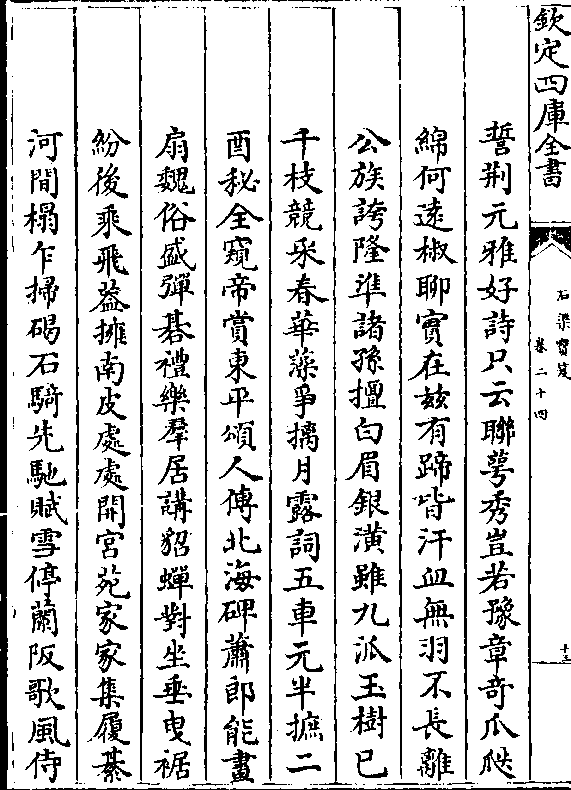 欽定四庫全書
石渠寶笈
卷二十四
十三
誓荆元雅好詩只云聯萼秀豈若豫章奇瓜瓞
綿何遠椒聊實在兹有蹄皆汗血無羽不長離
公族誇隆準諸孫擅白眉銀潢雖九派玉樹已
千枝競采春華藻爭摛月露詞五車元半摭二
酉秘全窺帝賞東平頌人傳北海碑蕭郎能畫
扇魏俗盛彈碁禮樂羣居講貂蟬對坐垂曳裾
紛後乘飛葢擁南皮處處開宮苑家家集履綦
河間榻乍掃碣石騎先馳賦雪停蘭阪歌風侍